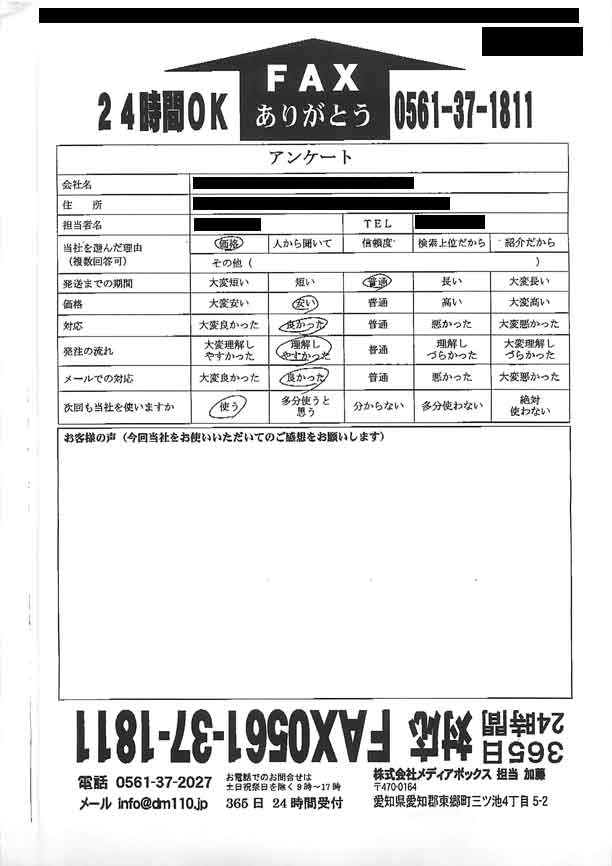 FAX
ありがとう
24時間OK
0561-37-1811
アンケート
会社名
住　所
担当者名 TEL
当社を選んだ理由（複数回答可） 価格 人から聞いて 信頼度 検索上位だから 紹介だから
その他（ ）
発送までの期間 大変短い 短い 普通 長い 大変長い
価格 大変安い 安い 普通 高い 大変高い
対応 大変良かった 良かった 普通 悪かった 大変悪かった
発注の流れ 大変理解しやすかった 理解しやすかった 普通 理解しづらかった 大変理解しづらかった
メールでの対応 大変良かった 良かった 普通 悪かった 大変悪かった
次回も当社を使いますか 使う 多分使うと思う 分からない 多分使わない 絶対使わない
お客様の声（今回当社をお使いいただいてのご感想をお願いします）
365日
24時間
対応 FAX0561-37-1811
電話 0561-37-2027
メール info@dm110.jp
お電話でのお問合せは
土日祝祭日を除く9～17時
365日 24時間受付
株式会社メディアボックス 担当 加藤
〒470-0164
愛知県愛知郡東郷町三ツ池4丁目5-2